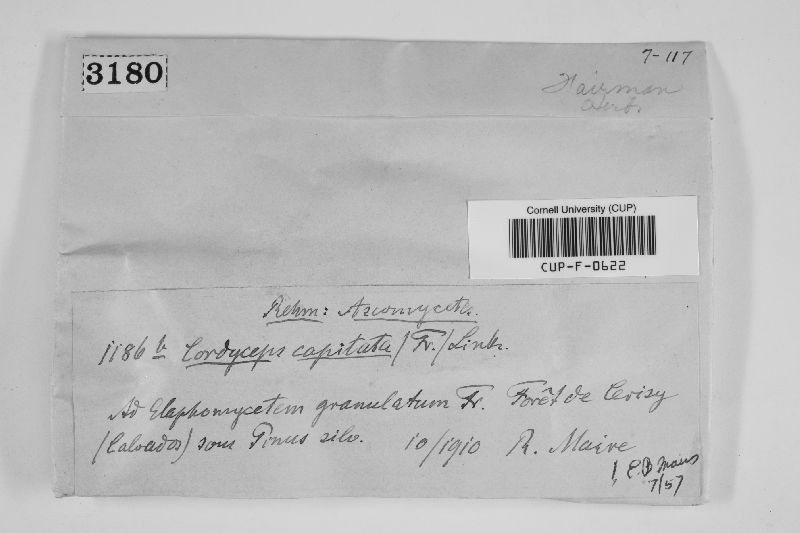 3180
7-117
Fairman
Herb.
Cornell University (CUP)
CUP-F-0622
Rehm: Ascomycetes.
1186 b Cordyceps capitata (Fr.) Link.
Ad Elaphomycetem granulatum Fr. Forêt de Cerisy
(Calvados) sous Pinus silv. 10/1910 R. Maire
! E.B. Mains
7/57